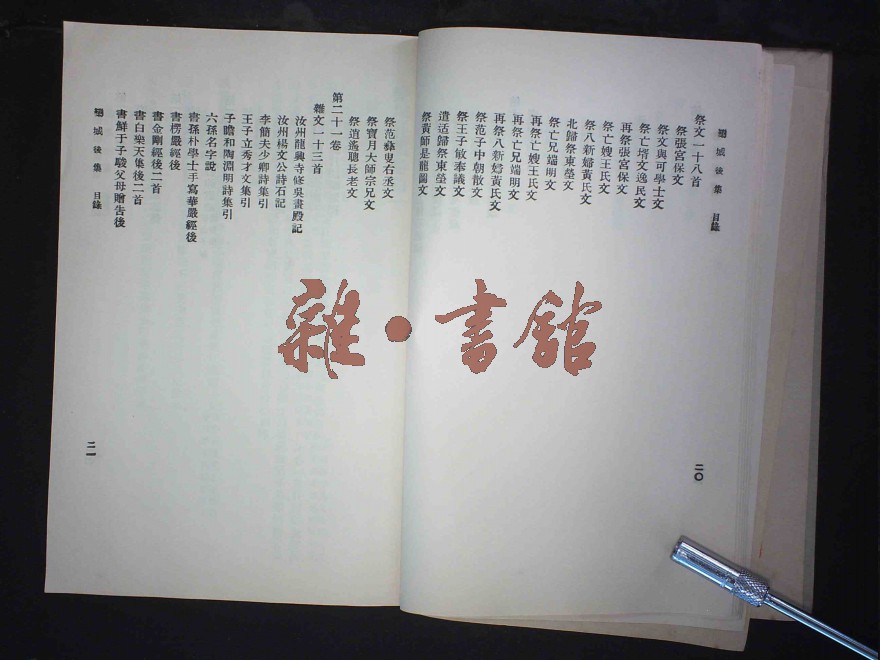 欒城後集　目錄
祭文一十八首
祭張宮保文
祭文與可學士文
祭亡壻文逸民文
再祭張宮保文
祭亡嫂王氏文
祭八新婦黃氏文
北歸祭東塋文
祭亡兄端明文
再祭亡嫂王氏文
再祭亡兄端明文
再祭八新婦黃氏文
祭范子中朝散文
祭王子敏奉議文
遣适歸祭東塋文
祭黃師是龍圖文
二〇
祭范彝叟右丞文
祭寶月大師宗兄文
祭逍遙聰長老文
第二十一卷
雜文一十三首
汝州龍興寺修吳畫殿記
汝州楊文公詩石記
李簡夫少卿詩集引
王子立秀才文集引
子瞻和陶淵明詩集引
六孫名字說
書孫朴學士手寫華嚴經後
書楞嚴經後
書金剛經後二首
書白樂天集後二首
書鮮于子駿父母贈告後
欒城後集　目錄
二一
雜·書館